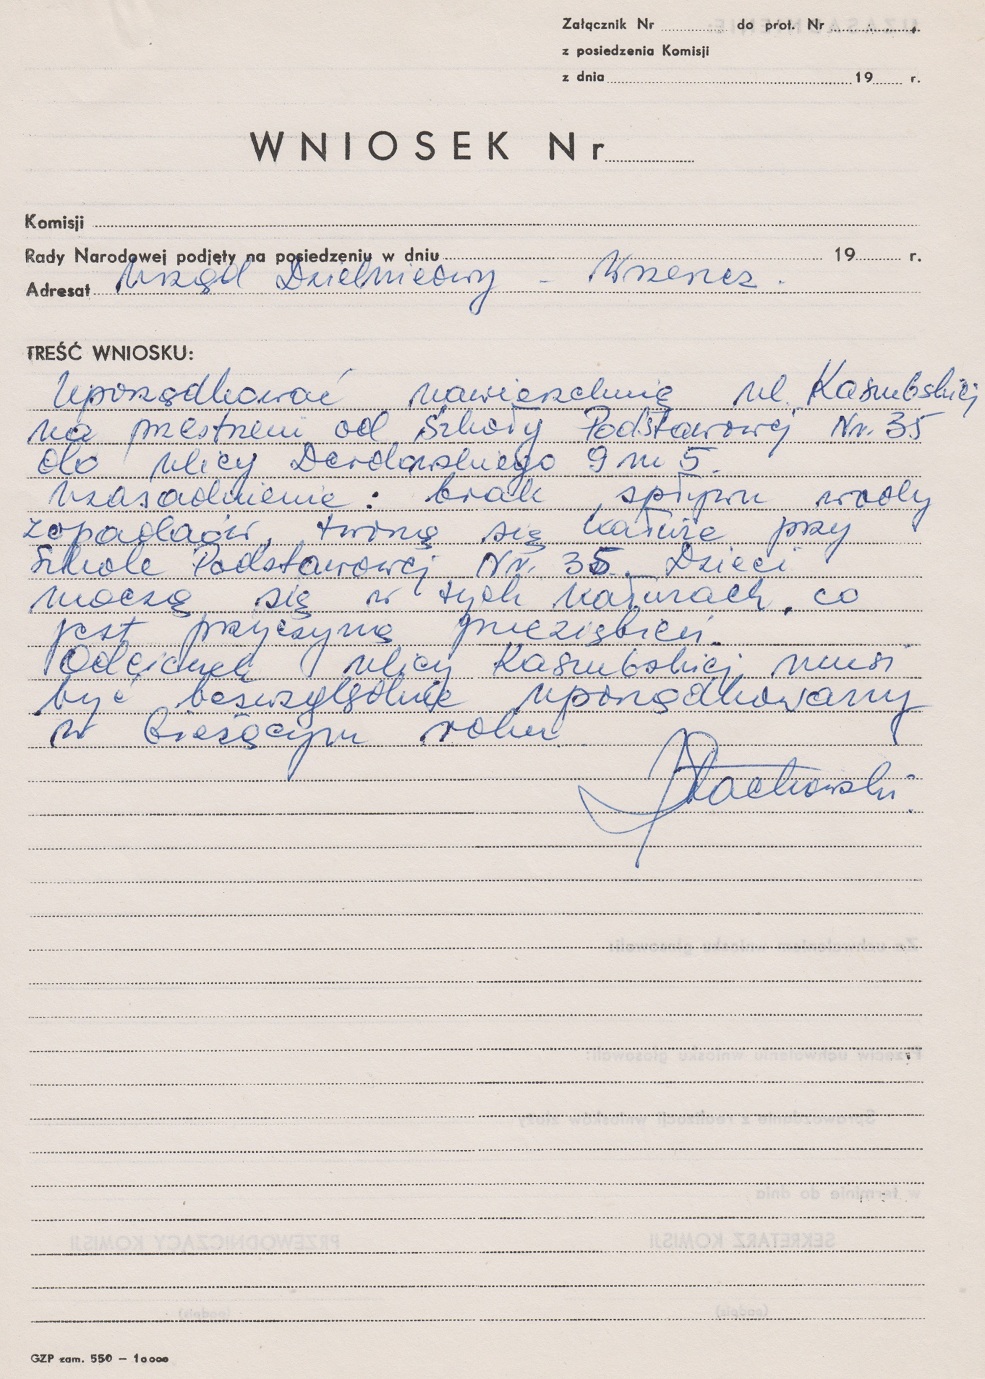 Załącznik Nr do prot. Nr
z posiedzenia Komisji
z dnia 19 r.
WNIOSEK Nr
Komisji
Rady Narodowej podjęty na posiedzeniu w dniu 19 r.
Adresat Urząd Dzielnicowy - Wrzeszcz.
TREŚĆ WNIOSKU:
Uporządkować nawierzchnię ul. Kaszubskiej
na przestrzeni od Szkoły Podstawowej Nr. 35
do ulicy Derdowskiego 9 m 5.
Uzasadnienie: brak spływu wody
z opadów, tworzą się kałuże przy
Szkole Podstawowej Nr. 35. Dzieci
moczą się w tych kałużach, co
jest przyczyną przeziębień.
Odcinek ulicy Kaszubskiej musi
być bezwzględnie uporządkowany
w bieżącym roku.
Stachowski
GZP zam. 550 — 10000